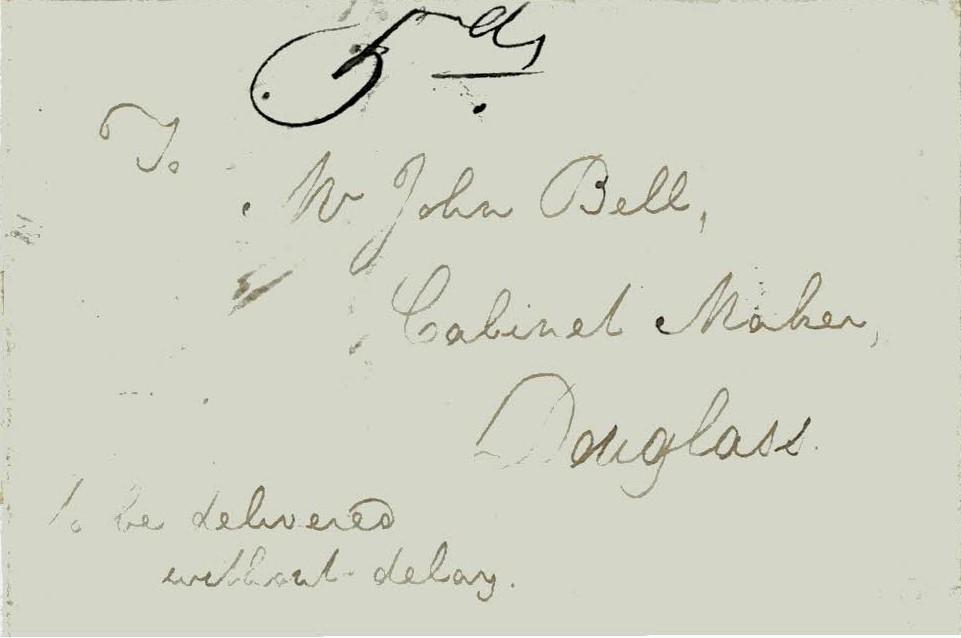 To
Mr John Bell,
Cabinet Maker,
Douglass.
To be delivered
without delay.